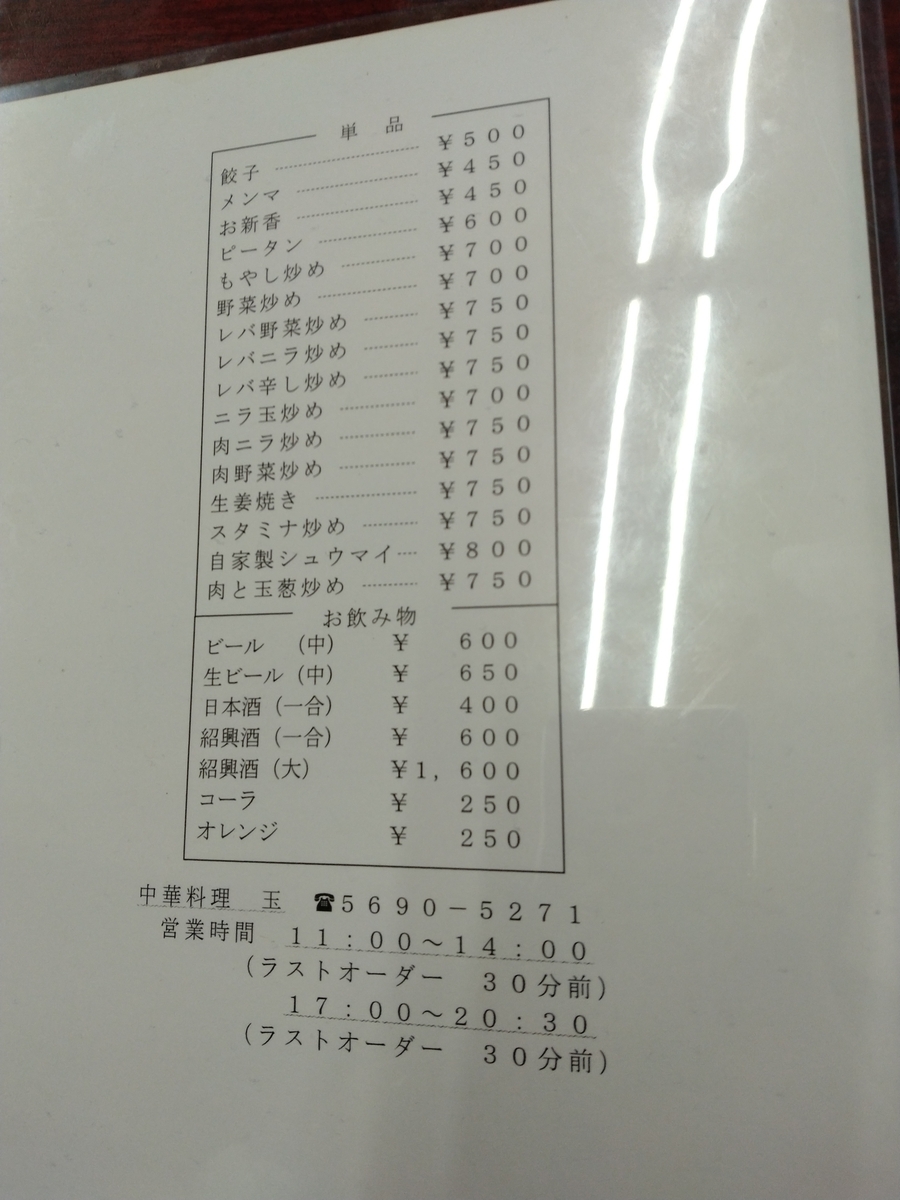 単 品
餃子 ¥500
メンマ ¥450
お新香 ¥450
ピータン ¥600
もやし炒め ¥700
野菜炒め ¥700
レバ野菜炒め ¥750
レバニラ炒め ¥750
レバ辛し炒め ¥750
ニラ玉炒め ¥700
肉ニラ炒め ¥750
肉野菜炒め ¥750
生姜焼き ¥750
スタミナ炒め ¥750
自家製シュウマイ ¥800
肉と玉葱炒め ¥750
お飲み物
ビール (中) ¥ 600
生ビール (中) ¥ 650
日本酒 (一合) ¥ 400
紹興酒 (一合) ¥ 600
紹興酒 (大) ¥1,600
コーラ ¥ 250
オレンジ ¥ 250
中華料理 玉 ☎5690-5271
営業時間 11:00~14:00
(ラストオーダー 30分前)
17:00~20:30
(ラストオーダー 30分前)